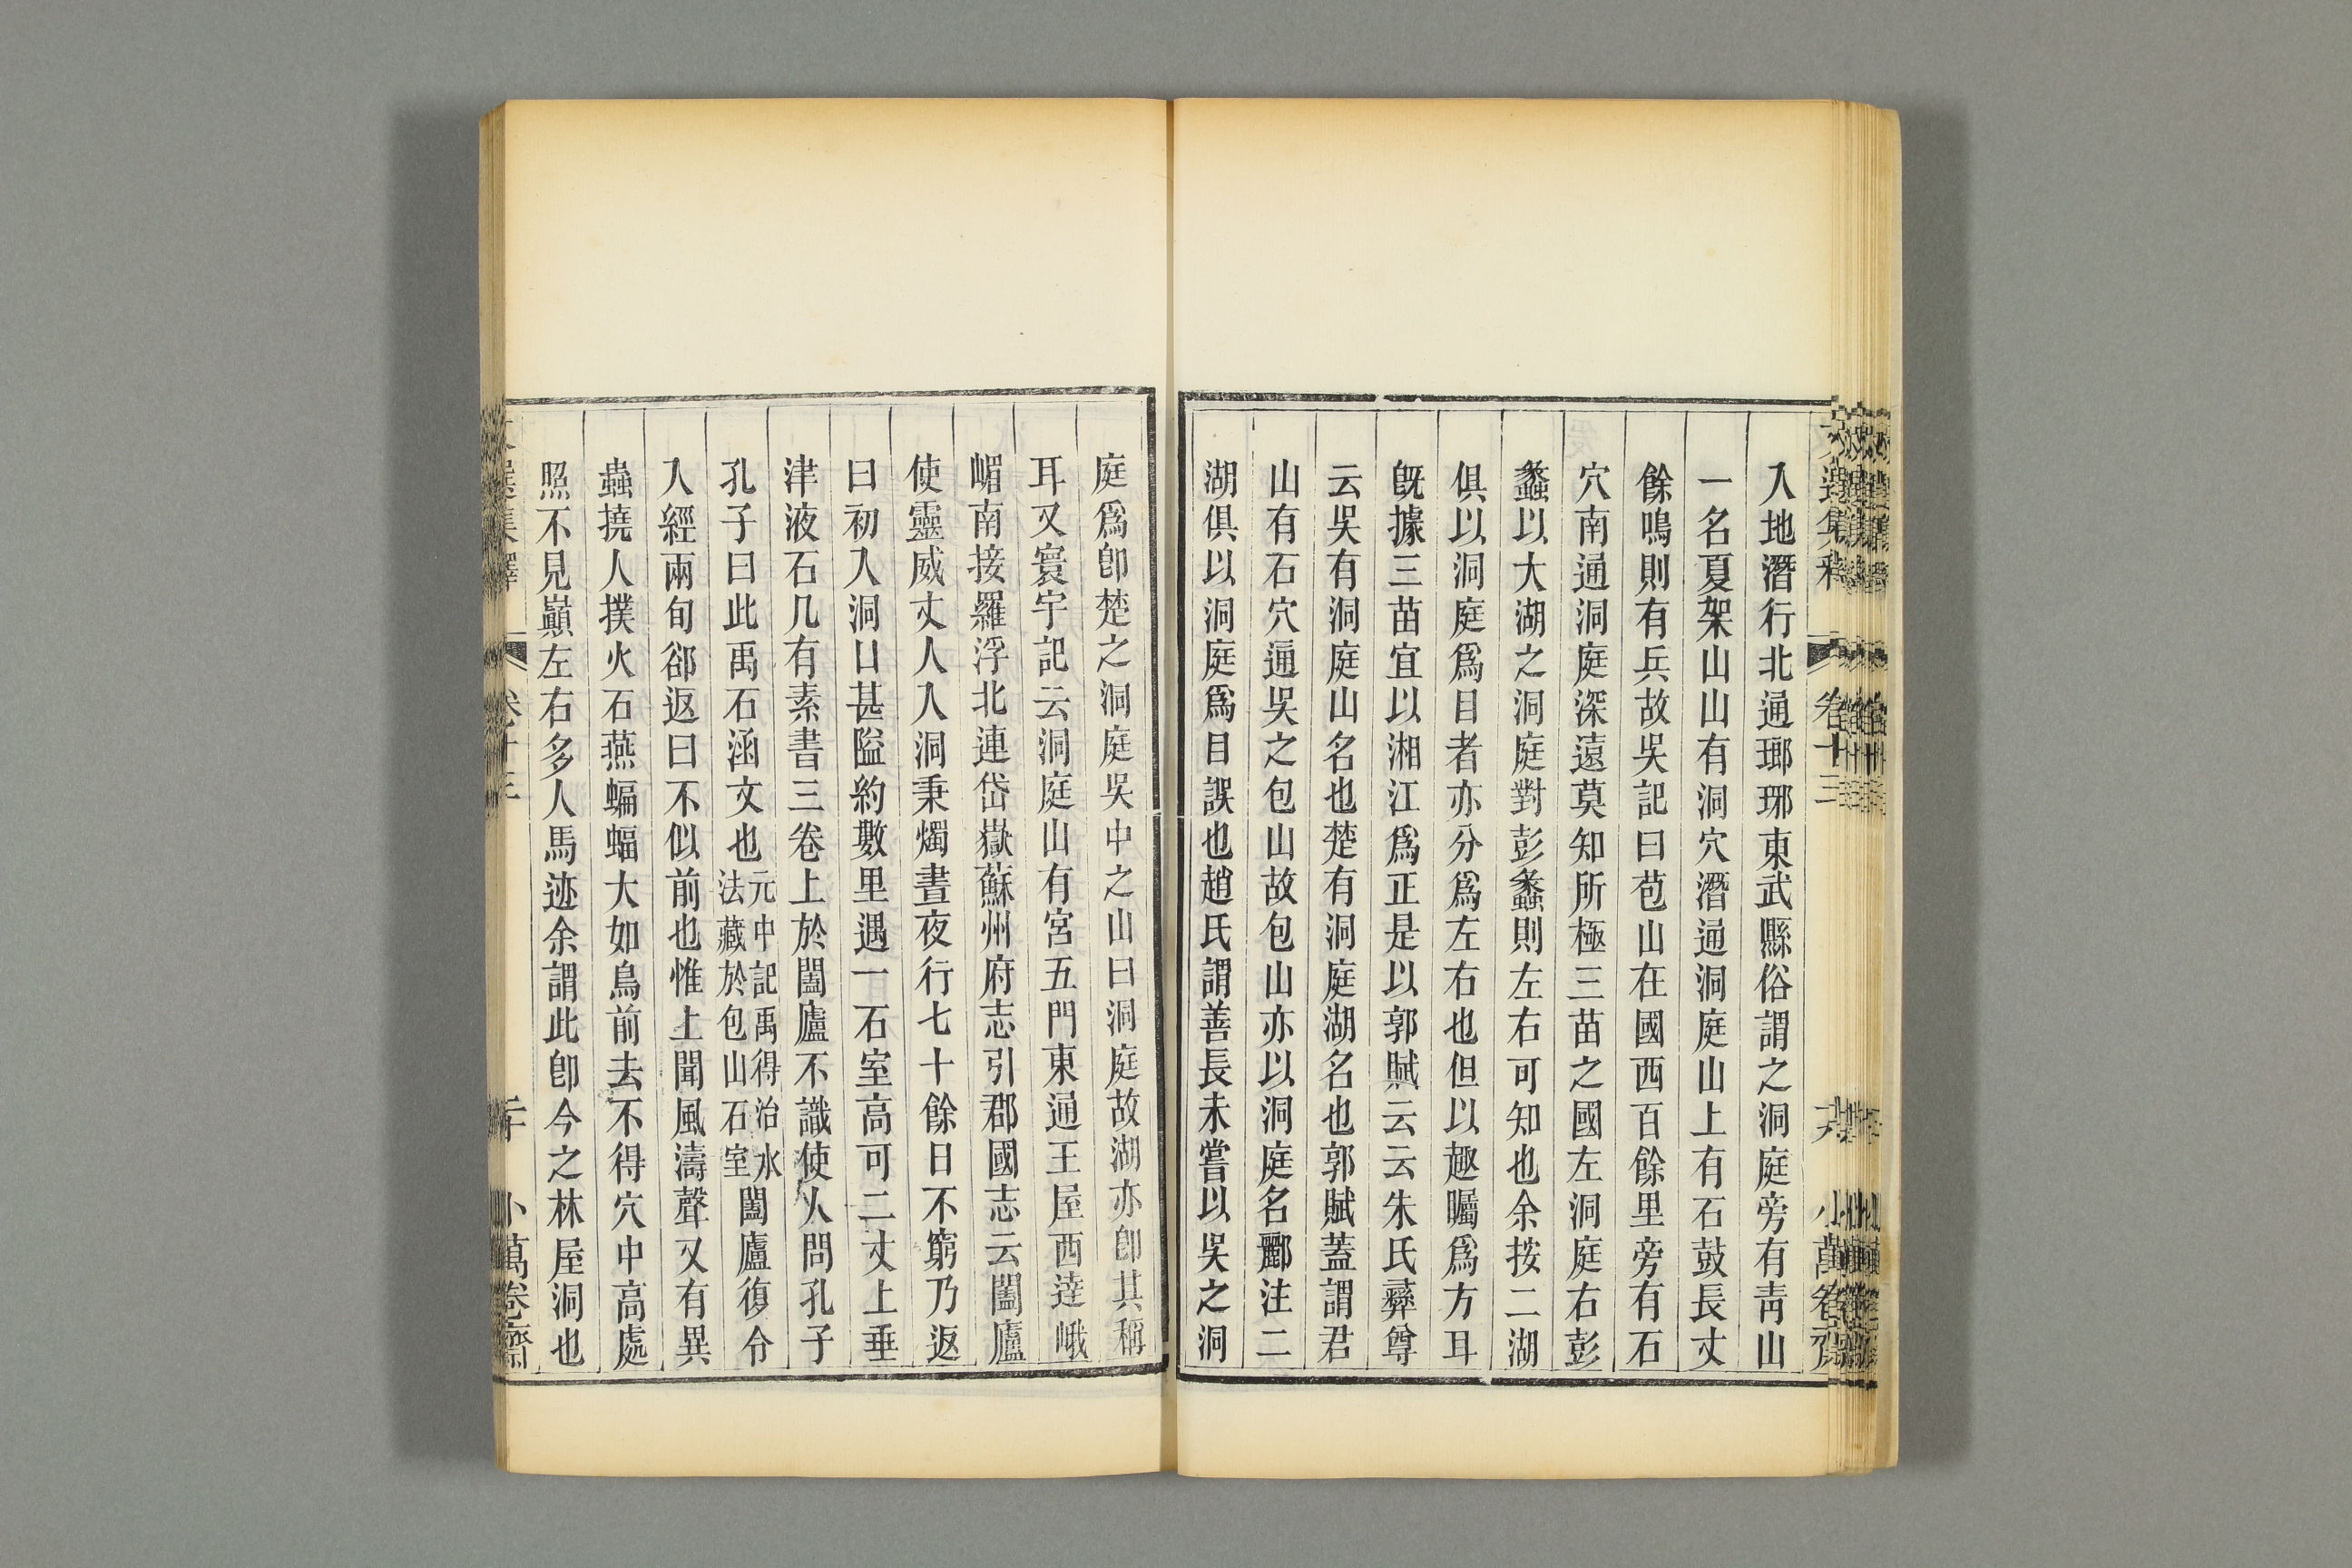 入地潛行北通瑯琊東武縣俗謂之洞庭旁有靑山
一名夏架山山有洞穴潛通洞庭山上有石鼓長丈
餘鳴則有兵故吳記曰苞山在國西百餘里旁有石
穴南通洞庭深遠莫知所極三苗之國左洞庭右彭
蠡以大湖之洞庭對彭蠡則左右可知也余按二湖
俱以洞庭爲目者亦分爲左右也但以趣矚爲方耳
旣據三苗宜以湘江爲正是以郭賦云云朱氏彞尊
云吳有洞庭山名也楚有洞庭湖名也郭賦蓋謂君
山有石穴通吳之包山故包山亦以洞庭名酈注二
湖俱以洞庭爲目誤也趙氏謂善長未嘗以吳之洞
庭爲卽楚之洞庭吳中之山曰洞庭故湖亦卽其稱
耳又寰宇記云洞庭山有宮五門東通王屋西達峨
嵋南接羅浮北連岱嶽蘇州府志引郡國志云闔廬
使靈威丈人入洞秉燭晝夜行七十餘日不窮乃返
曰初入洞口甚隘約數里遇一石室高可二丈上垂
津液石几有素書三卷上於闔廬不識使人問孔子
孔子曰此禹石函文也元中記禹得治水法藏於包山石室闔廬復令
入經兩旬卻返曰不似前也惟上聞風濤聲又有異
蟲撓人撲火石燕蝙蝠大如鳥前去不得穴中高處
照不見巓左右多人馬迹余謂此卽今之林屋洞也
文選集釋 卷十三 二十 小萬卷齋